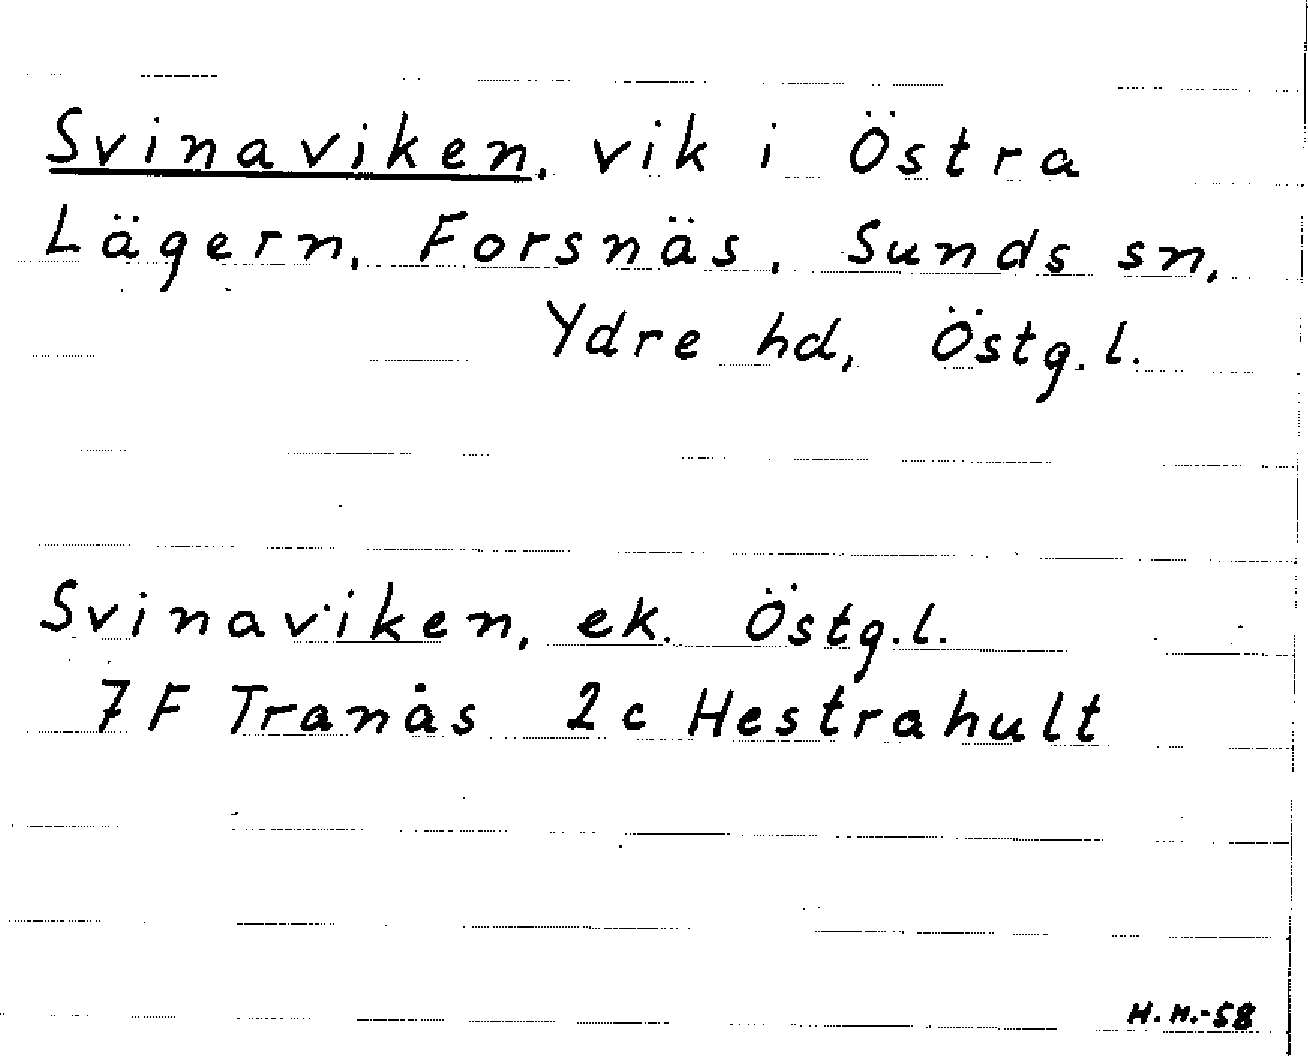 Svinaviken, vik i Östra
Lägern, Forsnäs, Sunds sn,
Ydre hd, Östg. l.
Svinaviken, ek. Östg. l.
7 F Tranås 2 c Hestrahult
H. H.-58